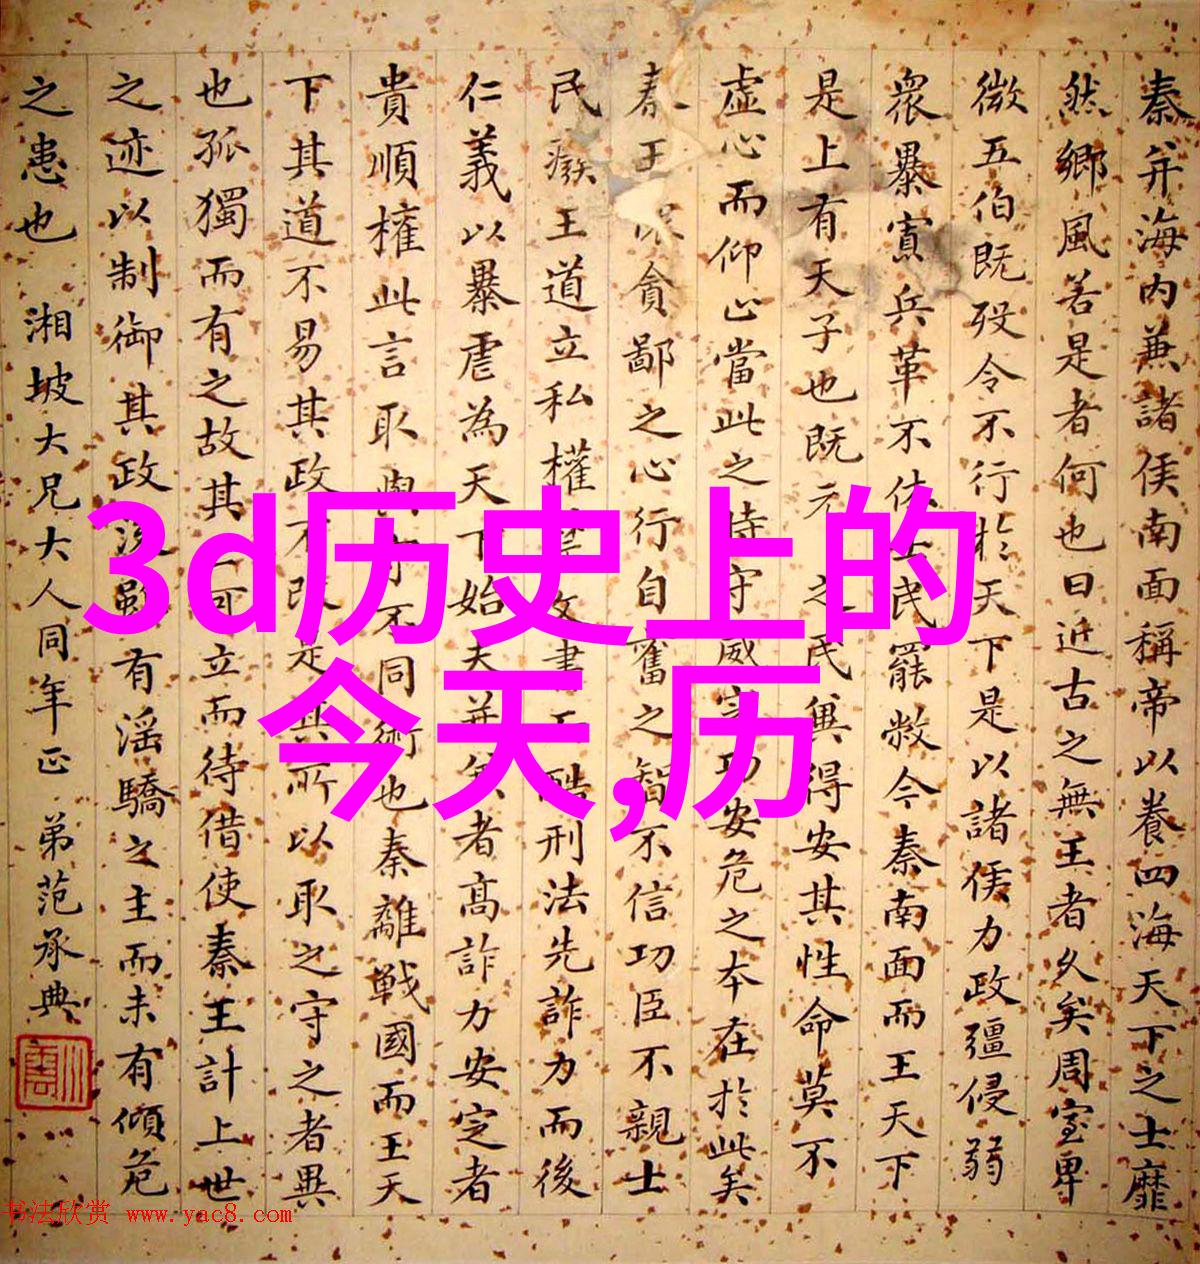 秦并海内兼諸侯南面稱帝以養四海天下之士靡
然鄉風若是者何也曰近古之無王者久矣周室卑
微五伯既歿令不行於天下是以諸侯力政彊侵弱
衆暴寡兵革不休士民罷敝今秦南面而王天下
是上有天子也既元之民冀得安其性命莫不
虛心而仰上當此之時守威定功安危之本在於此矣
秦王貪鄙之心行自奮之智不信功臣不親士
民廢王道立私權文書而酷刑法先詐力而後
仁義以暴虐為天下始夫并兼者高詐力安定者
貴順權此言取與守不同術也秦離戰國而王天
下其道不易其政不改是其所以取之守之者異
也孤獨而有之故其亡可立而待借使秦王計上世
之迹以制御其政後雖有淫驕之主而未有傾危
之患也 湘坡大兄大人同年正 弟范承典
3d历史上的
今天,历
书法欣赏 www.yac8.com